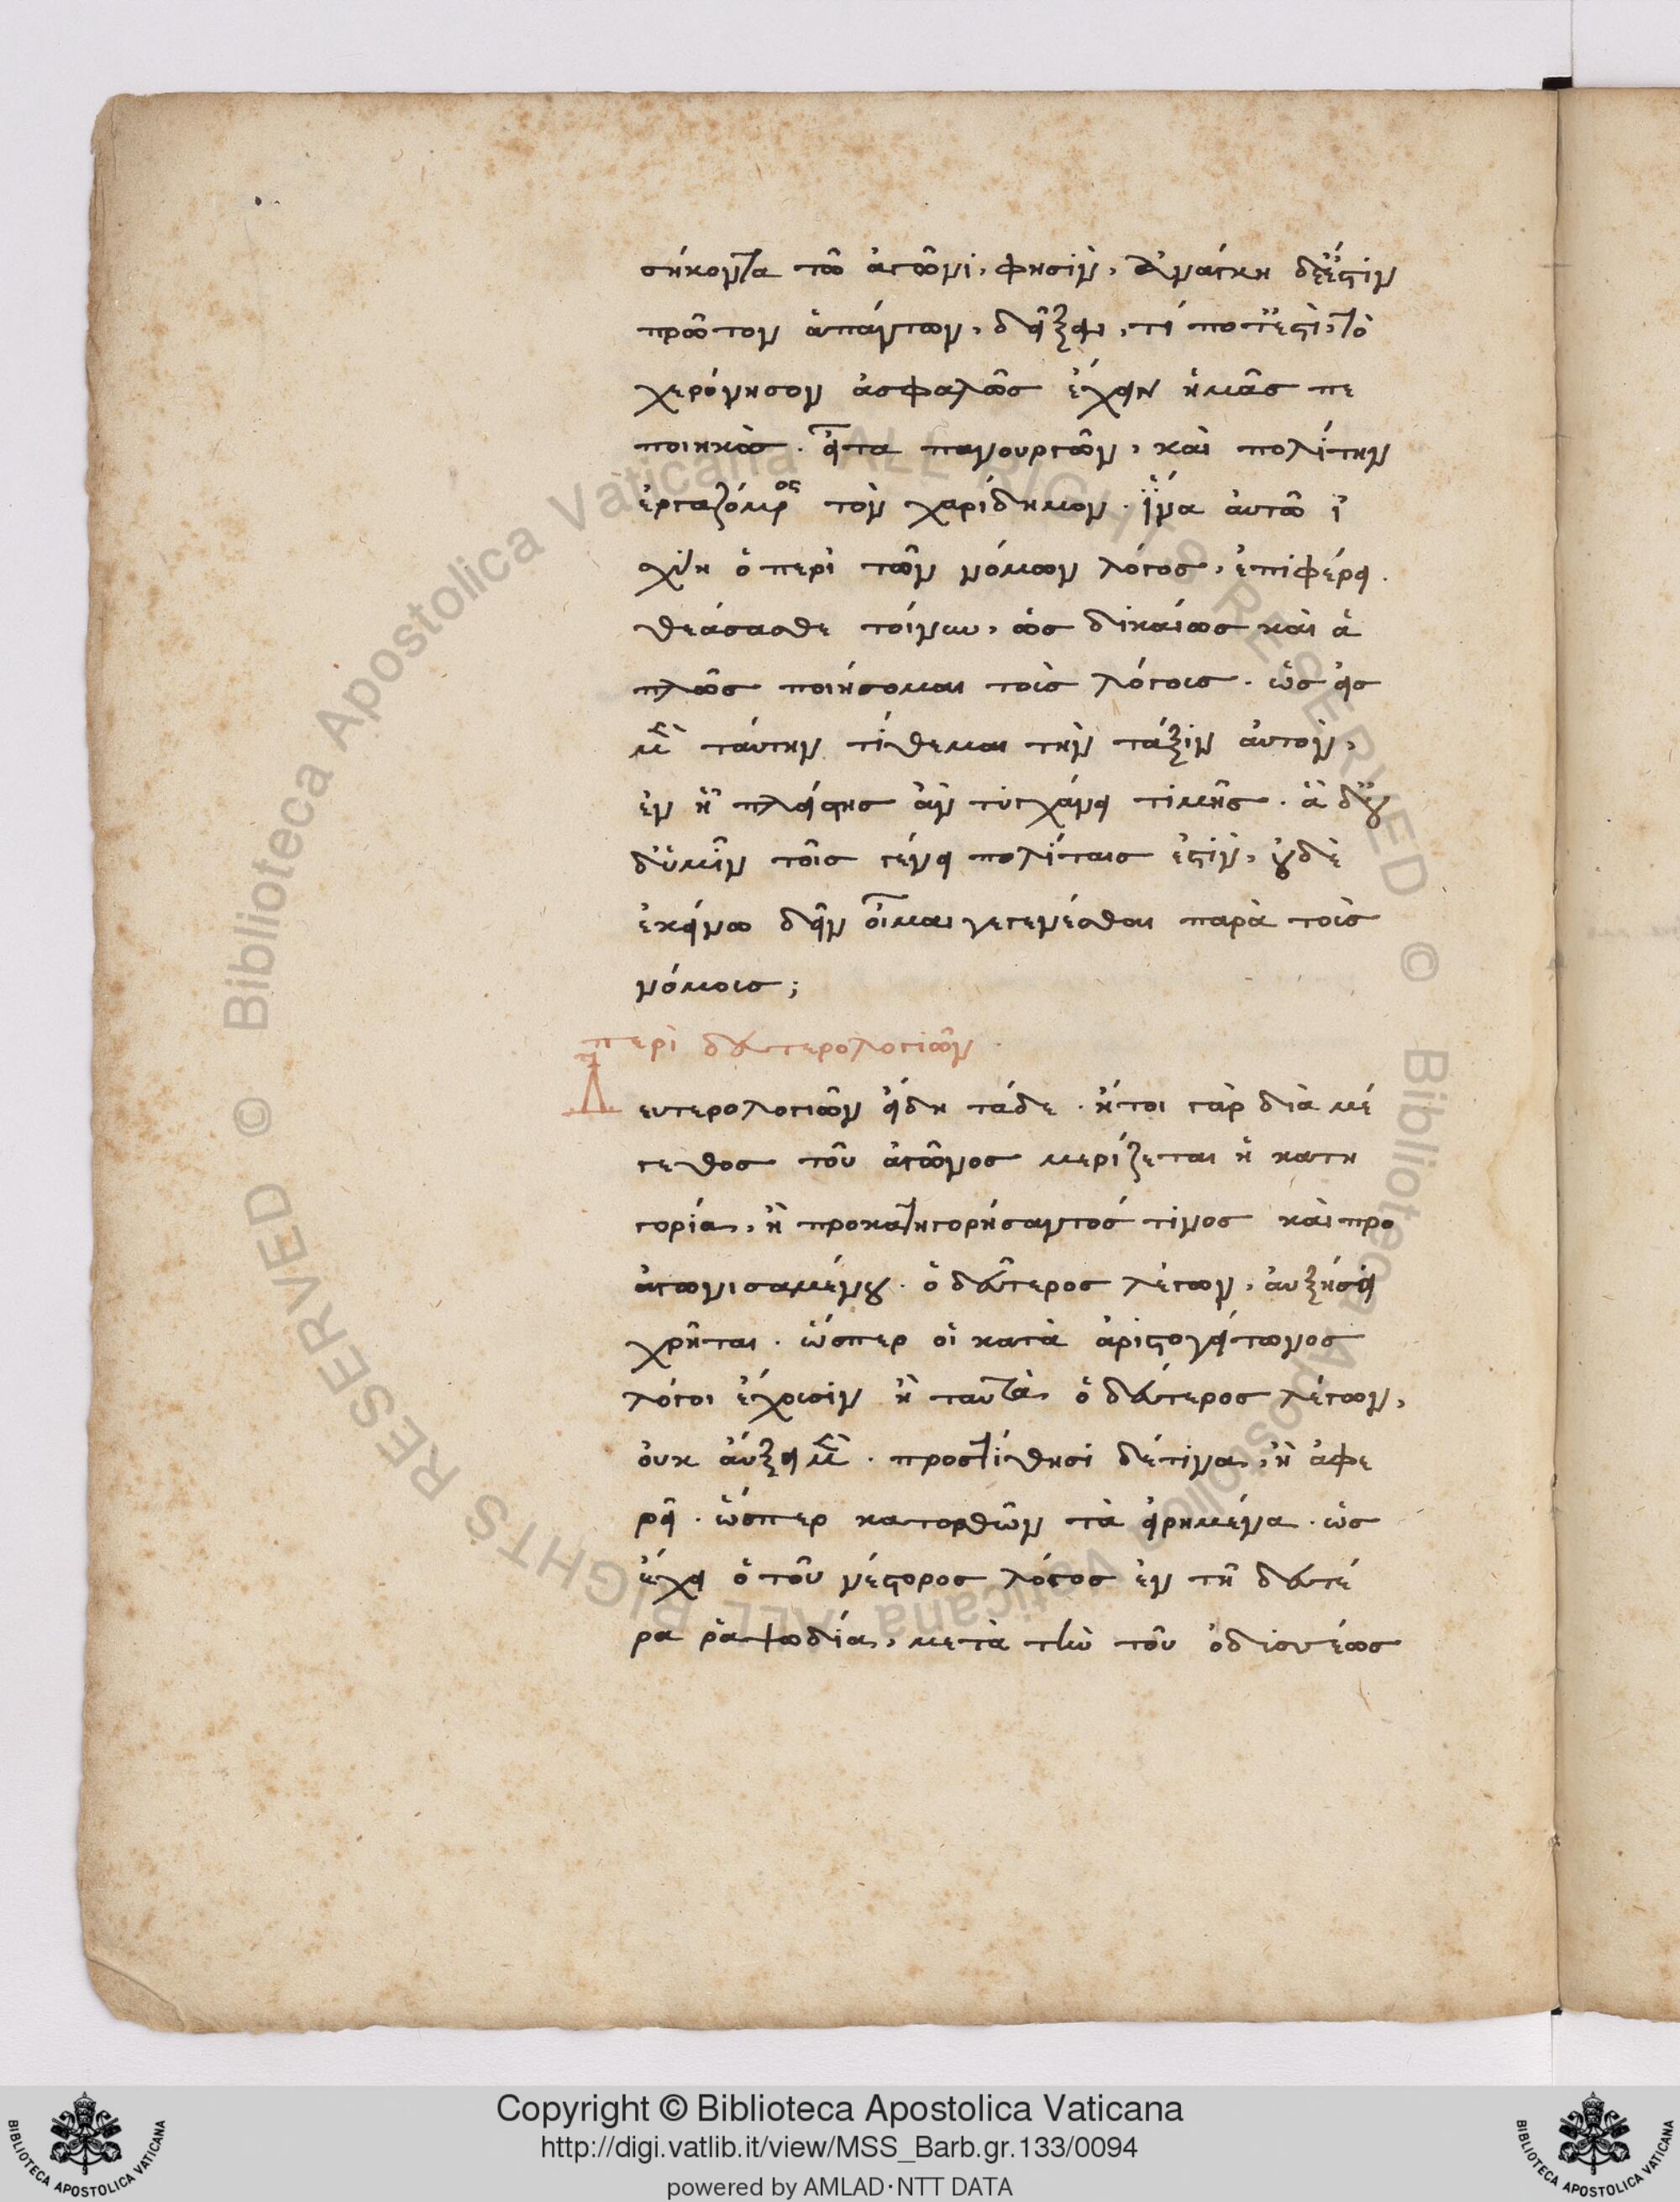 σήκοντα τῶ ἀγῶνι, φησὶν, ἀνάγκη δέ ἐστιν
πρῶτον ἁπάντων, δεῖξαι, τί ποτ' ἐστὶ, τὸ
χερόνησον ἀσφαλῶς ἔχειν ἡμᾶς πε
ποιηκὸς. εἶτα πανουργῶν, καὶ πολίτην
ἐργαζόμενος τὸν χαρίδημον. ἵνα αὐτῶ ἰ
σχύη ὁ περὶ τῶν νόμων λόγος, ἐπιφέρει.
θεάσασθε τοίνυν, ὡς δικαίως καὶ ἁ
πλῶς ποιήσομαι τοὺς λόγους. ὡς εἰς
μὲν ταύτην τίθεμαι τὴν τάξιν αὐτὸν,
ἐν ἧ πλείστης ἂν τυγχάνει τιμῆς. ἃ δ' οὐ
δ' ὑμῖν τοῖς γένει πολίταις ἐστὶν, οὐδὲ
ἐκείνω δεῖν οἶμαι γεγενέσθαι παρὰ τοὺς
νόμους;
περὶ δευτερολογιῶν.
Δευτερολογιῶν εἴδη τάδε. ἤτοι γὰρ διὰ μέ
γεθος τοῦ ἀγῶνος μερίζεται ἡ κατη
γορία, ἢ προκατηγορήσαντός τινος καὶ προ
αγωνισαμένου. ὁ δεύτερος λέγων, αὐξήσει
χρῆται. ὥσπερ οἱ κατὰ ἀριστογείτωνος
λόγοι ἔχουσιν ἢ ταυτὰ ὁ δεύτερος λέγων,
οὐκ αὔξει μὲν. προστίθησι δέ τινα, ἢ ἀφε
ρεῖ. ὥσπερ κατορθῶν τὰ εἰρημένα. ὡς
ἔχει ὁ τοῦ νέστορος λόγος ἐν τῆ δευτέ
ρα ῥαψωδία, μετὰ τὴν τοῦ ὀδισυέως
Copyright © Biblioteca Apostolica Vaticana
http://digi.vatlib.it/view/MSS_Barb.gr.133/0094
powered by AMLAD·NTT DATA